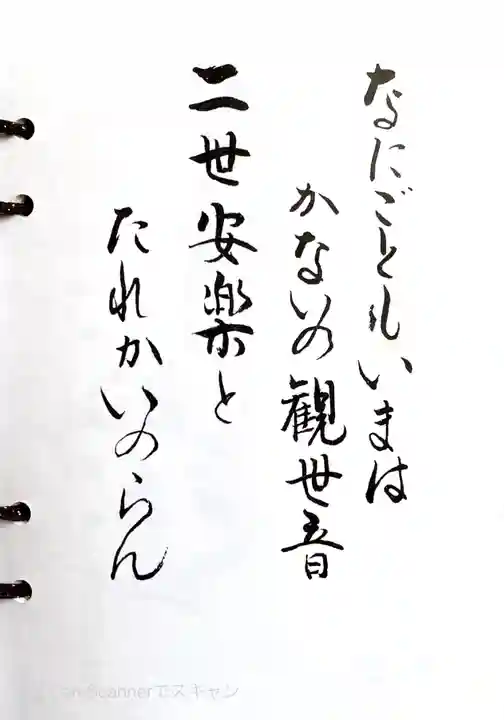 なにごともいまは
かないの観世音
二世安楽と
たれかいのらん
Scannerでスキャン